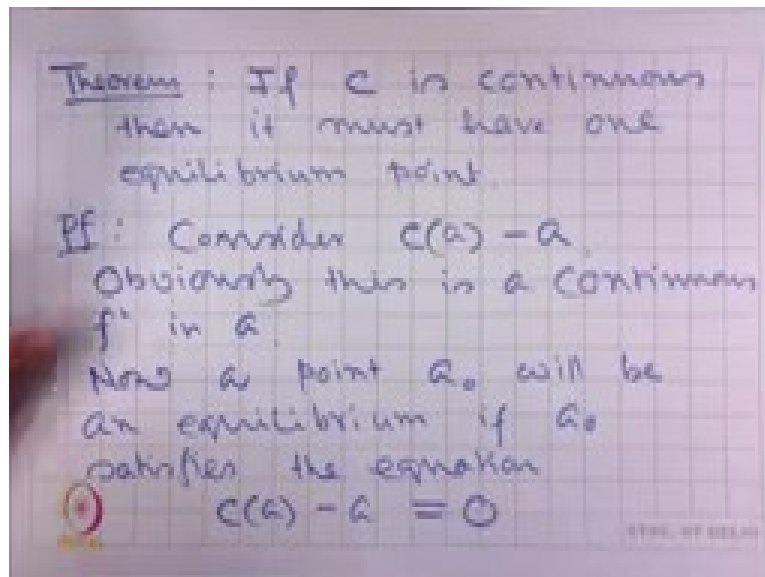 Theorem : If c is continuous
then it must have one
equilibrium point.
Pf : Consider c(a) - a.
Obviously this is a continuous
fⁿ in a.
Now a point a₀ will be
an equilibrium if a₀
satisfies the equation
c(a) - a = 0
ETSC, IIT DELHI